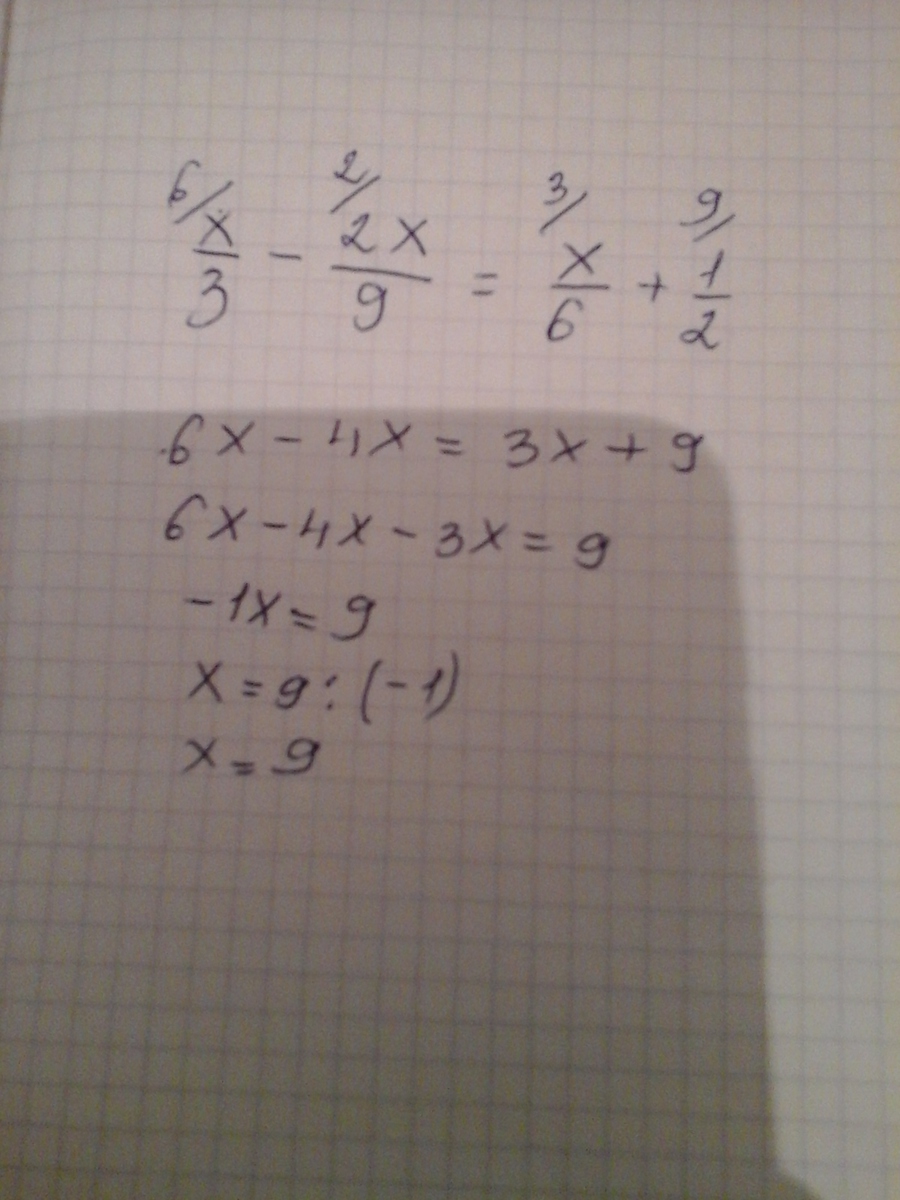 6/ 2/ 3/ 9/
x/3 - 2x/9 = x/6 + 1/2
6x - 4x = 3x + 9
6x - 4x - 3x = 9
-1x = 9
x = 9 : (-1)
x = 9